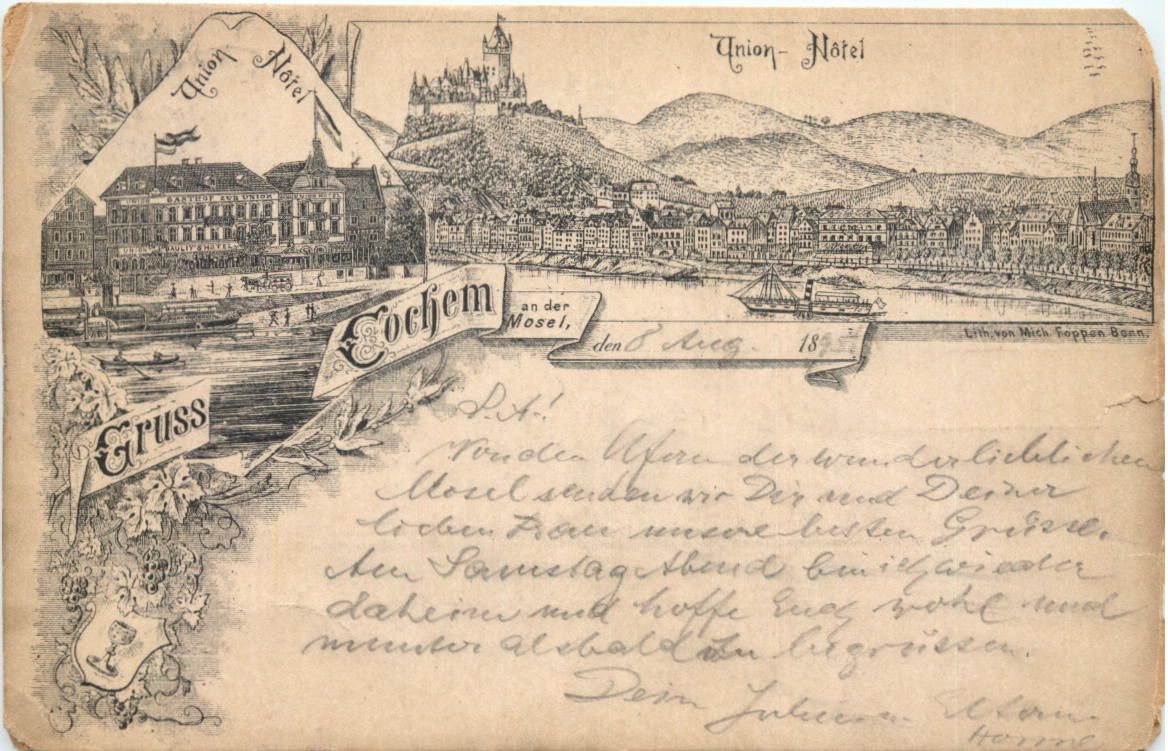 Union Hôtel
Union-Hôtel
GASTHOF ZUR UNION
Gruss
Cochem
an der
Mosel,
den 8 Aug. 189
Lith. von Mich. Foppen Bonn.
L. A.!
Von den Ufern der wunderlieblichen
Mosel senden wir Dir und Deiner
lieben Frau unsere besten Grüsse.
Am Samstag Abend bin ich wieder
daheim und hoffe Euch wohl und
munter alsbald zu begrüssen.
Dein